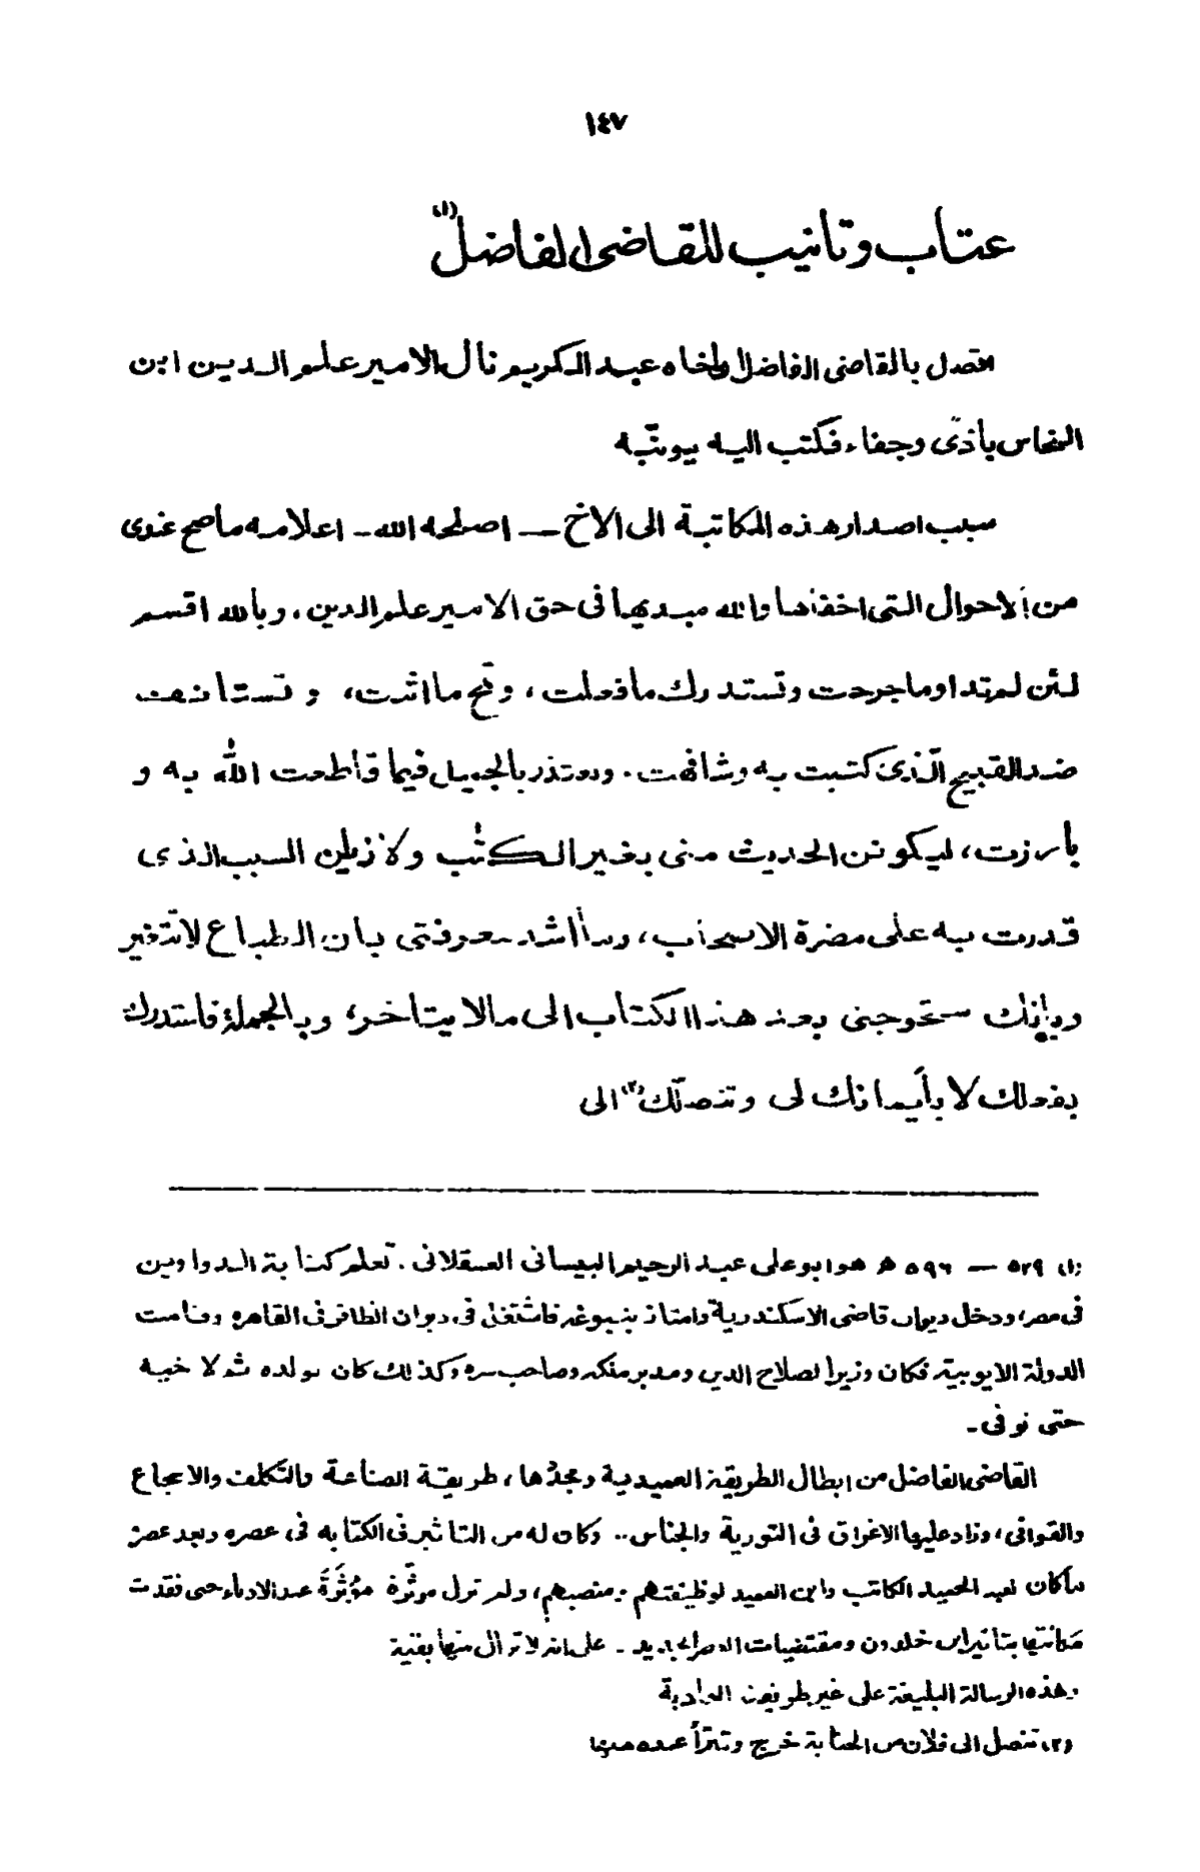 ١٤٧
عتاب وتانيب للقاضى الفاضل(١)
اتصل بالقاضى الفاضل ان اخاه عبد الكريم نال الامير علم الدين ابن
النحاس بأذًى وجفاء فكتب اليه يونبه
سبب اصدار هذه المكاتبة الى الاخ — اصلحه الله - اعلامه ماصح عندى
من الاحوال التى اخفاها والله مبديها فى حق الامير علم الدين، وبالله اقسم
لئن لم تداو ما جرحت وتستدرك ما فعلت، وتمح ما اثرت، و تستانف
ضد القبيح الّذى كتبت به وشافهت. وتعتذر بالجميل فيما قاطعت الله به و
بارزت، ليكونن الحديث منى بغير الكتب ولازيلن السبب الذى
قدرت به على مضرة الاصحاب، وما اشد معرفتى بان الطباع لا تتغير
وبانك ستحوجنى بعد هذا الكتاب الى مالا يتاخر، وبالجملة فاستدرك
بفعلك لا بأيمانك لى وتنصلك(٢) الى
(١) ٥٢٩ — ٥٩٦ ھ هو ابو على عبد الرحيم البيسانى العسقلانى. تعلم كتابة الدواوين
فى مصر، ودخل ديوان قاضى الاسكندرية وامتاز بنبوغه فاشتغل فى ديوان الظافر فى القاهره وقامت
الدولة الايوبية فكان وزيرا لصلاح الدين ومدبر ملكه وصاحب سره وكذلك كان لولده ثم لا خيه
حتى توفى.
القاضى الفاضل من ابطال الطريقة العميدية ومجدّها، طريقة الصناعة والتكلف والاسجاع
والقوافى، وزاد عليها الاغراق فى التورية والجناس.. وكان له من التاثير فى الكتابه فى عصره وبعد عصره
ماكان لعبد الحميد الكاتب وابن العميد لوظيفتهم ومنصبهم، ولم تزل موثّرة عند الادباء حتى فقدت
مكانتها بتاثير ابن خلدون ومقتضيات العصر الجديد - على انه لا تزال منها بقية
وهذه الرسالة البليغة على غير طريقته العادية
(٢) تنصل الى فلان من الجناية خرج وتبرّأ عنده منها